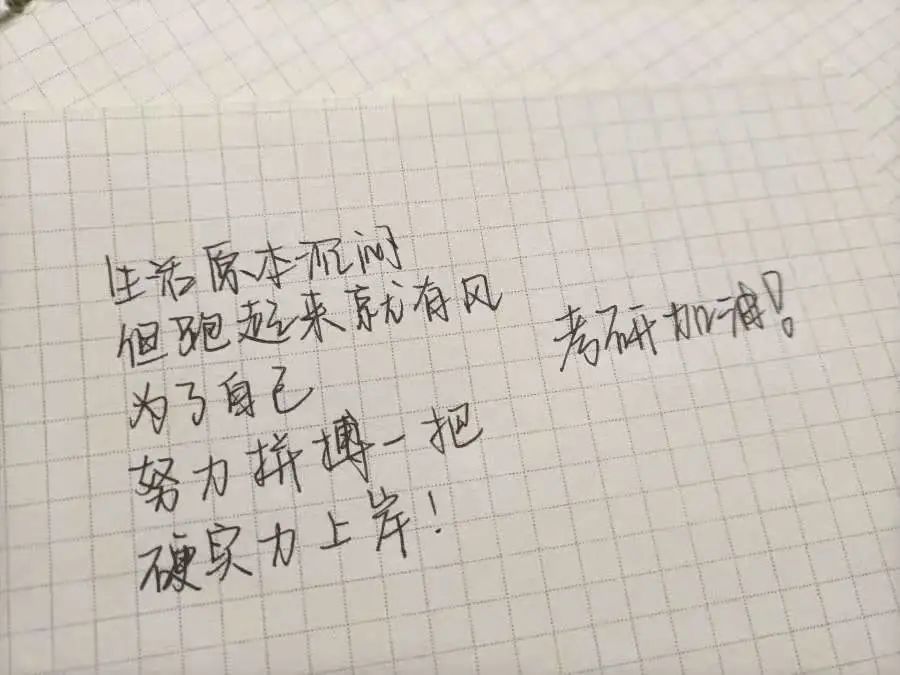 生活原本沉闷
但跑起来就有风
为了自己
努力拼搏一把
硬实力上岸！
考研加油！